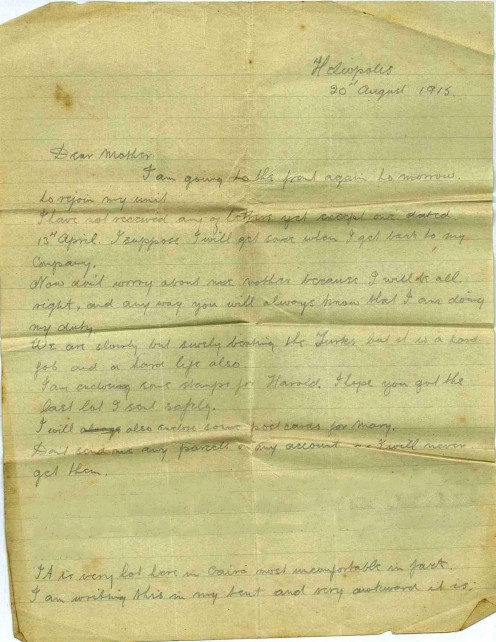 Heliopolis
20th August 1915.
Dear Mother
I am going to the front again to morrow.
to rejoin my unit
I have not received any of letters yet except one dated
13th April. I suppose I will get some when I get back to my
Company.
Now don't worry about me mother because I will be all
right, and any way you will always know that I am doing
my duty.
We are slowly but surely beating the Turks but it is a hard
job and a hard life also
I am enclosing some stamps for Harold. I hope you got the
last lot I sent safely.
I will also enclose some post cards for Mary.
Dont send me any parcels on any account as I will never
get them.
It is very hot here in Cairo most uncomfortable in fact.
I am writing this in my tent and very awkward it is.